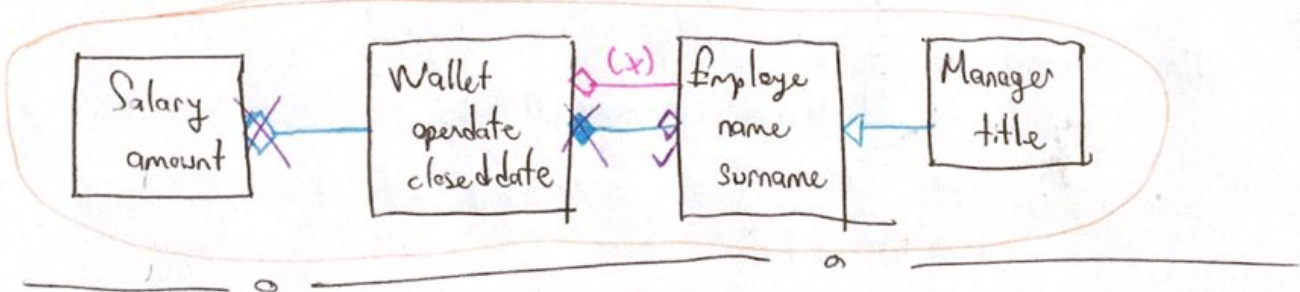 Salary
amount
Wallet
opendate
closeddate
(x)
Employe
name
surname
Manager
title